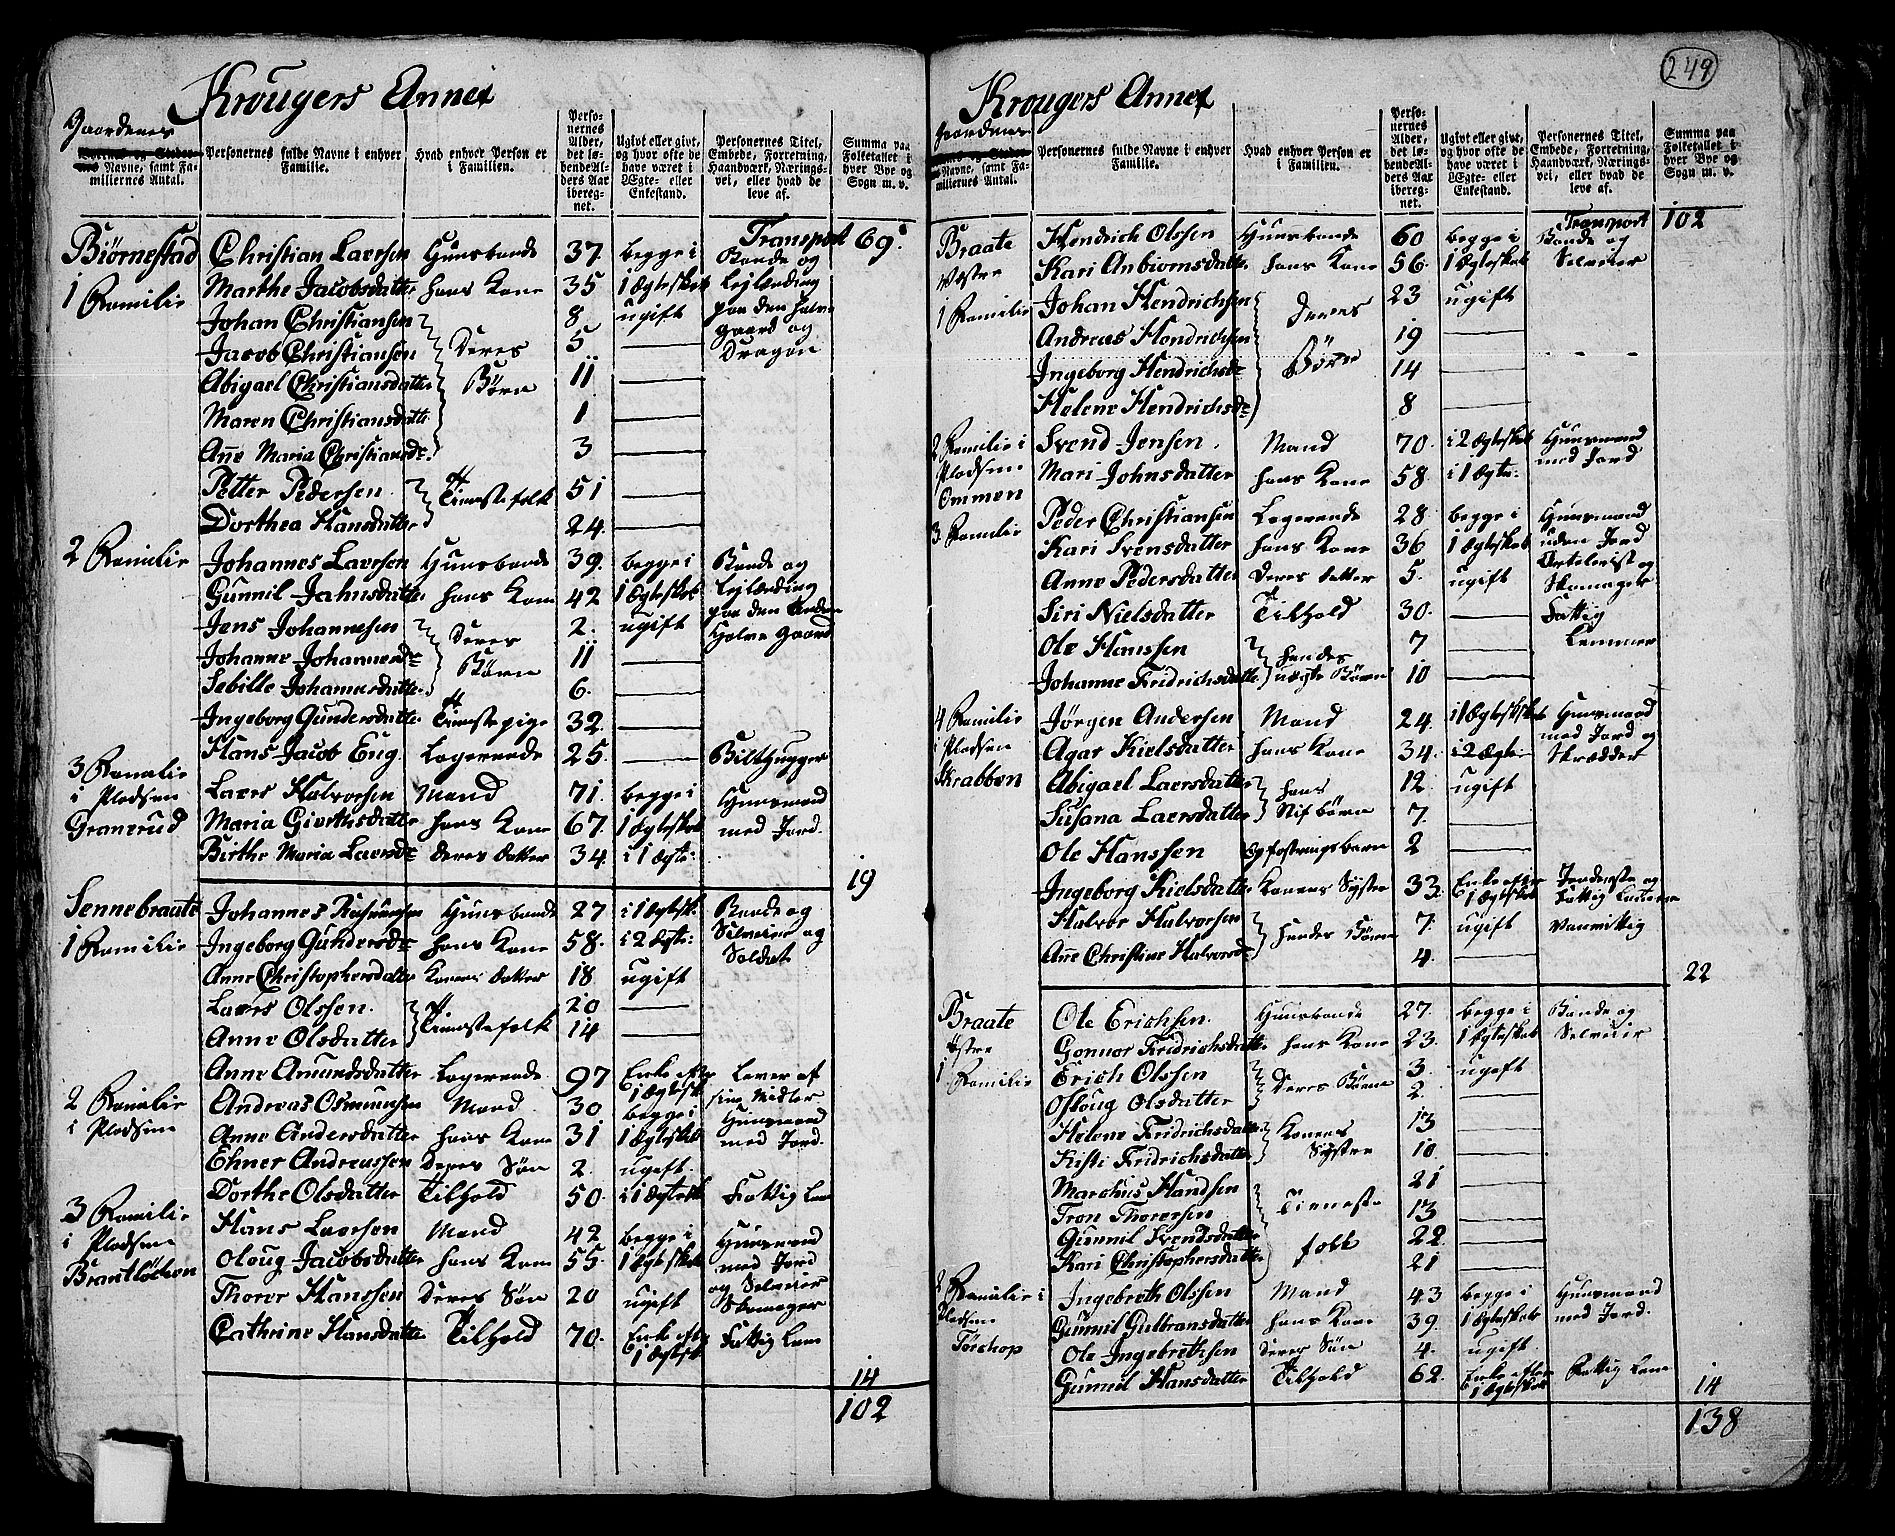 Krougers Annex
Gaardenes
Navne, samt Familiernes Antal.
Personernes fulde Navne i enhver Familie.
Hvad enhver Person er i Familien.
Personernes Alder, det løbendeAlders Aar iberegnet.
Ugivt eller givt, og hvor ofte de have været i Ægte- eller Enkestand.
Personernes Titel, Embede, Forretning, Haandværk, Næringsvei, eller hvad de leve af.
Summa paa Folketallet i hver Bye og Sogn m. v.
Transport 69
Biørnestad Christian Laersen Huusbonde 37 begge i Bonde og
1 Familie Marthe Jacobsdatter hans Kone 35 1 Ægteskab Lejlænding
Johan Christiansen 8 ugift paa den halve
Jacob Christiansen Deres 5 — gaard og Dragon
Abigael Christiansdatter Børn 11 —
Maren Christiansdatter 1 —
Añe Maria Christiansd 3 —
Petter Pedersen Tienestefolk 51 —
Dorthea Hansdatter 24 —
2 Familie Johannes Laersen Huusbonde 39 begge i Bonde og
Gunnil Jahnsdatter hans Kone 42 1 Ægteskab Lejlænding
Jens Johannesen 2 ugift paa den anden
Johanne Johannesd Deres Børn 11 — Halve Gaard
Sebille Johannesdatter 6 —
Ingeborg Gundersdatter Tienestepige 32 —
Hans Jacob Eug Logerende 25 — Bilthugger
3 Familie
i Pladsen Laers Halvorsen Mand 71 begge i Huusmand
Granerud Maria Giorthsdatter hans Kone 67 1 Ægteskab med Jord
Birthe Maria Laersd deres datter 34 i 1 Ægte:
19
Sennebraate Johannes Rasmusen Huusbonde 27 i 1 Ægtesk: Bonde og
1 Familie Ingeborg Gundersd hans Kone 58 i 2 Ægte: Selveier og
Anne Christophersdatter Konens datter 18 ugift Soldat
Laers Olssen Tienestefolk 20 —
Anne Olsdatter 14 —
Anne Amundsdatter Logerende 97 Enke efter 1 Ægtesk Lever af sine Midler
2 Familie Andreas Osmunsen Mand 30 begge i Huusmand
i Pladsen Anne Andersdatter hans Kone 31 1 Ægteskab med Jord
Ehner Andreassen Deres Søn 2 ugift
Dorthe Olsdatter Tilhold 50 i 1 Ægtesk Fattig Lem
3 Familie Hans Laersen Mand 42 begge i Huusmand
i Pladsen Oloug Jacobsdatter hans Kone 55 1 Ægteskab med Jord
Brantløchen Thorer Hanssen Deres Søn 20 ugift og Selveier Skomager
Cathrine Hansdatter Tilhold 70 Enke efter 1 Ægtesk Fattig Lem
14
102
249
Krougers Annex
Gaardenes
Navne, samt Familiernes Antal.
Personernes fulde Navne i enhver Familie.
Hvad enhver Person er i Familien.
Personernes Alder, det løbendeAlders Aar iberegnet.
Ugivt eller givt, og hvor ofte de have været i Ægte- eller Enkestand.
Personernes Titel, Embede, Forretning, Haandværk, Næringsvei, eller hvad de leve af.
Summa paa Folketallet i hver Bye og Sogn m. v.
Transport 102
Braate Hendrich Olssen Huusbonde 60 begge i Bonde og
Vestre Kari Anbiornsdatter hans Kone 56 1 Ægteskab Selveier
1 Familie Johan Hendrichsen Deres 23 ugift
Andreas Hendrichsen 19 —
Ingeborg Hendrichsd Børn 14 —
Helene Hendrichsd 8 —
2 Familie i Svend Jensen Mand 70 i 2 Ægteskab Huusmand
Pladsen Mari Johnsdatter hans Kone 58 i 1 Ægte: med Jord
Ommen
3 Familie Peder Christiansen Logerende 28 begge i Huusmand
Kari Svensdatter hans Kone 36 1 Ægteskab uden Jord
Anne Pedersdatter Deres datter 5 ugift Artelerist og Skomager
Siri Nielsdatter Tilhold 30 — Fattig
Ole Hanssen hendes 7 — Lemmer
Johanne Fridrichsdatter uægte Børn 10 —
4 Familie Jørgen Andersen Mand 24 i 1 Ægteskab Huusmand
i Pladsen Agar Kielsdatter hans Kone 34 i 2 Ægte med Jord og
Skrabben Abigael Laersdatter hans 12 ugift Skrædder
Susana Laersdatter Stif børn 7 —
Ole Hanssen Opfostringsbarn 2 —
Ingeborg Kielsdatter Konens Syster 33 Enke efter 1 Ægteskab Inderste og Fattig Lemmer
Halvor Halvorsen hendes Børn 7 ugift Vanvittig
Añe Christine Halvorsd 4 —
22
Braate Ole Erichsen Huusbonde 27 begge i Bonde og
østre Gonnor Fridrichsdatter hans Kone 23 1 Ægteskab Selveier
1 Familie Erich Olssen Deres Børn 3 ugift
Osloug Olsdatter 2 —
Helene Fridrichsdatter Konens 13 —
Kisti Fridrichsdatter Syster 10 —
Marchus Handsen 21 —
Tron Thorersen Tieneste 13 —
Gunnil Svendsdatter folk 22 —
Kari Christophersdatter 21 —
2 Familie i Ingebreth Olssen Mand 43 begge i Huusmand
Pladsen Gunnil Gulbransdatter hans Kone 39 1 Ægteskab med Jord
Torshop Ole Ingebrethsen Deres Søn 4 ugift
Gunnil Hansdatter Tilhold 62 Enke efter 1 Ægteskab Fattig Lem
14
138